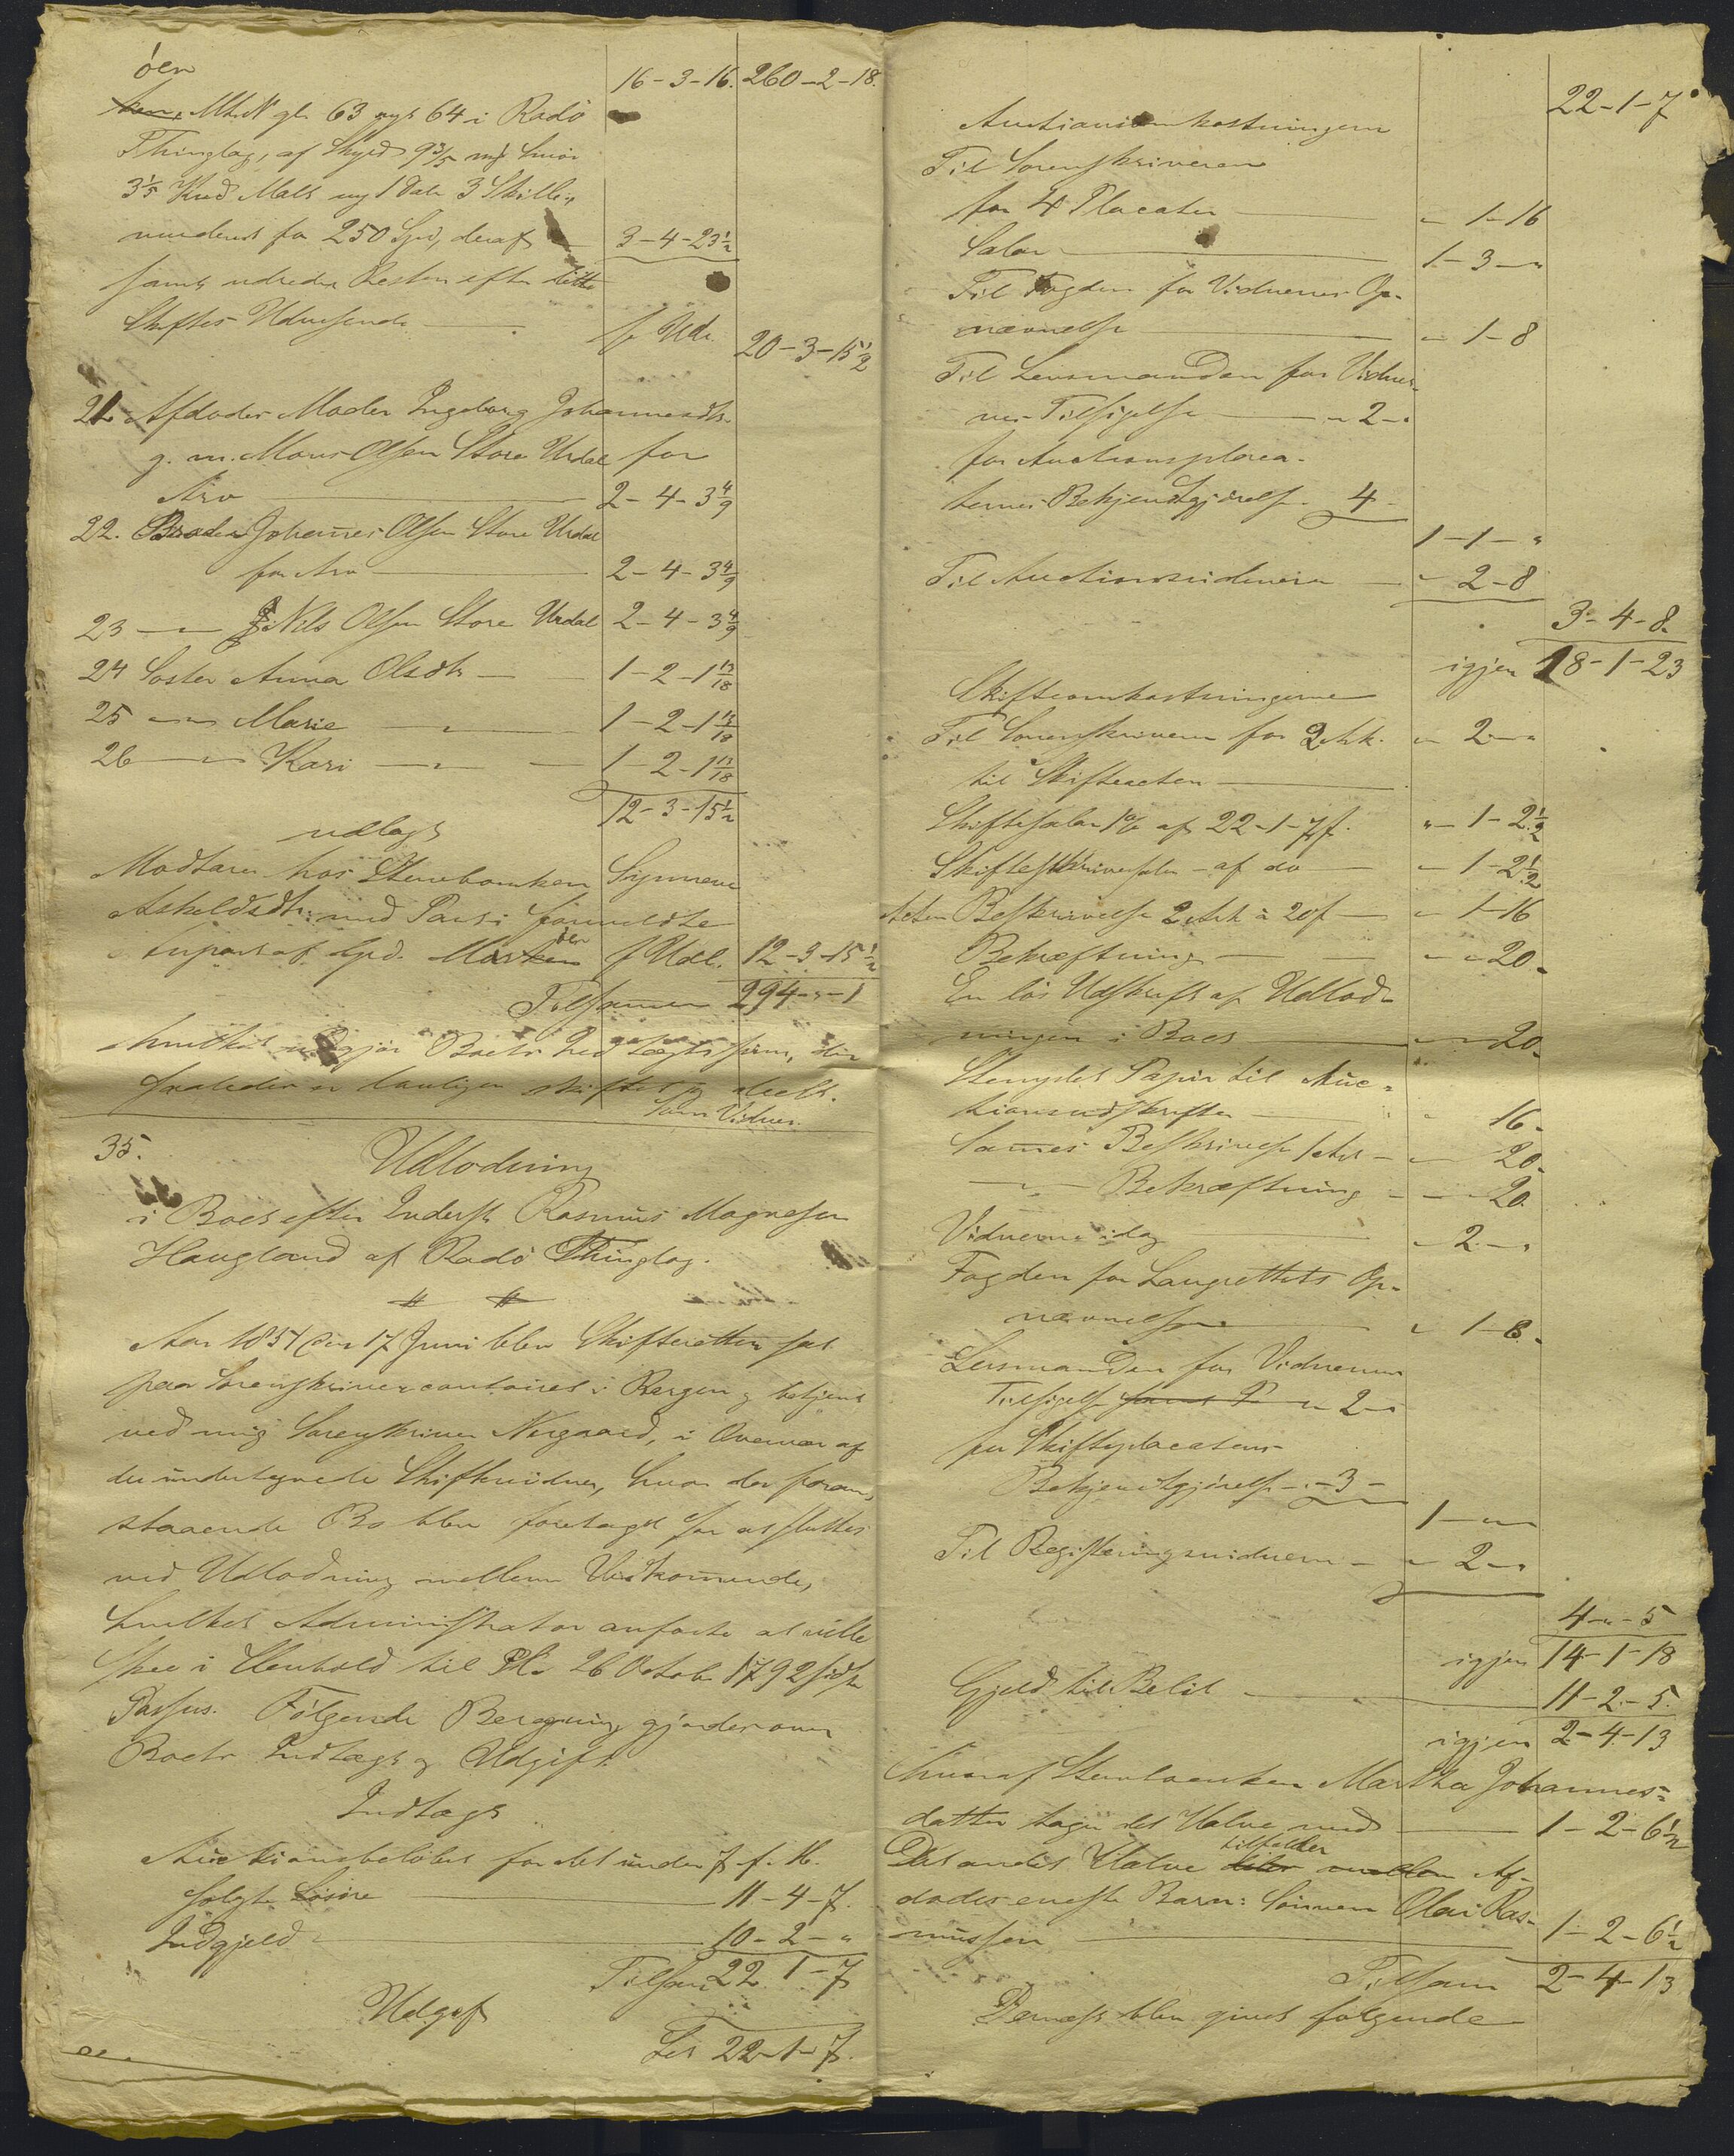 øen 16-3-16. 260-2-18.
Mt. N gl. 63 nyt 64 i Radö
Thinglag, af Skyld 9 3/5 mk Smör
3 1/5 Kud Malt ny 1 Dalr 3 Skill.,
vurderet for 250 Spd, deraf 3-4-23 1/2
samt udreder Resten efter dette
Skiftes Udvisende f Udl. 20-3-15 1/2
21. Afdødes Moder Ingeborg Johannesdtr.
g. m. Mons Olsen Store Urdal for
Arv 2-4-3 4/9
22. Broder Johannes Olsen Store Urdal
for Arv 2-4-3 4/9
23 — " — Nils Olsen Store Urdal 2-4-3 4/9
24 Søster Anna Olsdtr — 1-2-1 13/18
25 — " — Marie — " — 1-2-1 13/18
26 — " — Kari — " — 1-2-1 13/18
12-3-15 1/2
udlagt
Modtager hos Stervboenken Synneve
Askeldsdtr: med Part i formeldte
Anpart af Grd. Marøen f Udl. 12-3-15 1/2
Tilsammen 294-"-1
hvilket udgjør Boets Indtægts Sum, der
saaledes er lovligen skiftet og deelt.
Som Vidner.
35. Udlodning
i Boet efter Inderst Rasmus Magnesen
Haugland af Radö Thinglag.
Aar 1854 den 17 Juni blev Skifteretten sat
paa Sorenskrivercontoiret i Bergen og betjent
ved mig Sorenskriver Nergaard, i Overvær af
de undertegnede Skiftevidner, hvor da foran-
staaende Bo blev foretaget for at sluttes
ved Udlodning mellem Vedkommende,
hvilket Administrator anførte at ville
skee i Henhold til Pl. 26 Octobr 1792 sidste
Passus. Følgende Beregning gjordes over
Boets Indtægt og Udgift.
Indtægt
Auctionsbeløbet for det under f. f. M.
solgte Løsøre 11-4-7.
Indgjeld 10-2-"
Tilsam. 22-1-7
Udgift
Lat. 22-1-7.
22-1-7
Auctionsomkostningerne
Til Sorenskriveren
for 4 Placater " 1-16
Salær 1-3-"
Til Fogden for Vidnernes Op-
nævnelse " 1-8
Til Lensmanden for Vidner-
nes Tilsigelse " 2-"
for Auctionsplaca-
ternes Bekjendtgjørelse 4-
1-1-"
Til Auctionsvidnerne " 2-8
3-4-8.
igjen 18-1-23
Skifteomkostningerne
Til Sorenskriveren for 2 Ark. " 2-"
til Skifteacten
Skiftesalær 1% af 22-1-7 f. "-1-2 1/2
Skifteskriversalær af do — " 1-2 1/2
Acten Beskrivelse 2 Ark à 20 f — " 1-16
Bekræftning — " " 20-
En løs Udskrift af Udlod-
ningen i Boet " " 20-
Stemplet Papir til Auc-
tionsudskriften " 16-
Sammes Beskrivelse 1 Ark — " 20-
— " — Bekræftning — " 20.
Vidnerne idag " 2-"
Fogden for Laugrettets Op-
nævnelse " 1-8-
Lensmanden for Vidnernes
Tilsigelse " 2-"
for Skifteplacatens
Bekjendtgjørelse " 3-
1-"-"
Til Registreringsvidnerne " 2-"
4-"-5
igjen 14-1-18
Gjeld til Belöb 11-2-5.
igjen 2-4-13
hvoraf Stervboenken Martha Johannes-
datter tager det Halve med 1-2-6 1/2
Det andet Halve tilfalder Af-
dødes eneste Barn: Sønnen Olai Ras-
mussen 1-2-6 1/2
Tilsam 2-4-13
Dernæst blev givet følgende